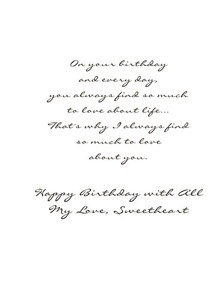 On your birthday
and every day,
you always find so much
to love about life...
That's why I always find
so much to love
about you.
Happy Birthday with All
My Love, Sweetheart